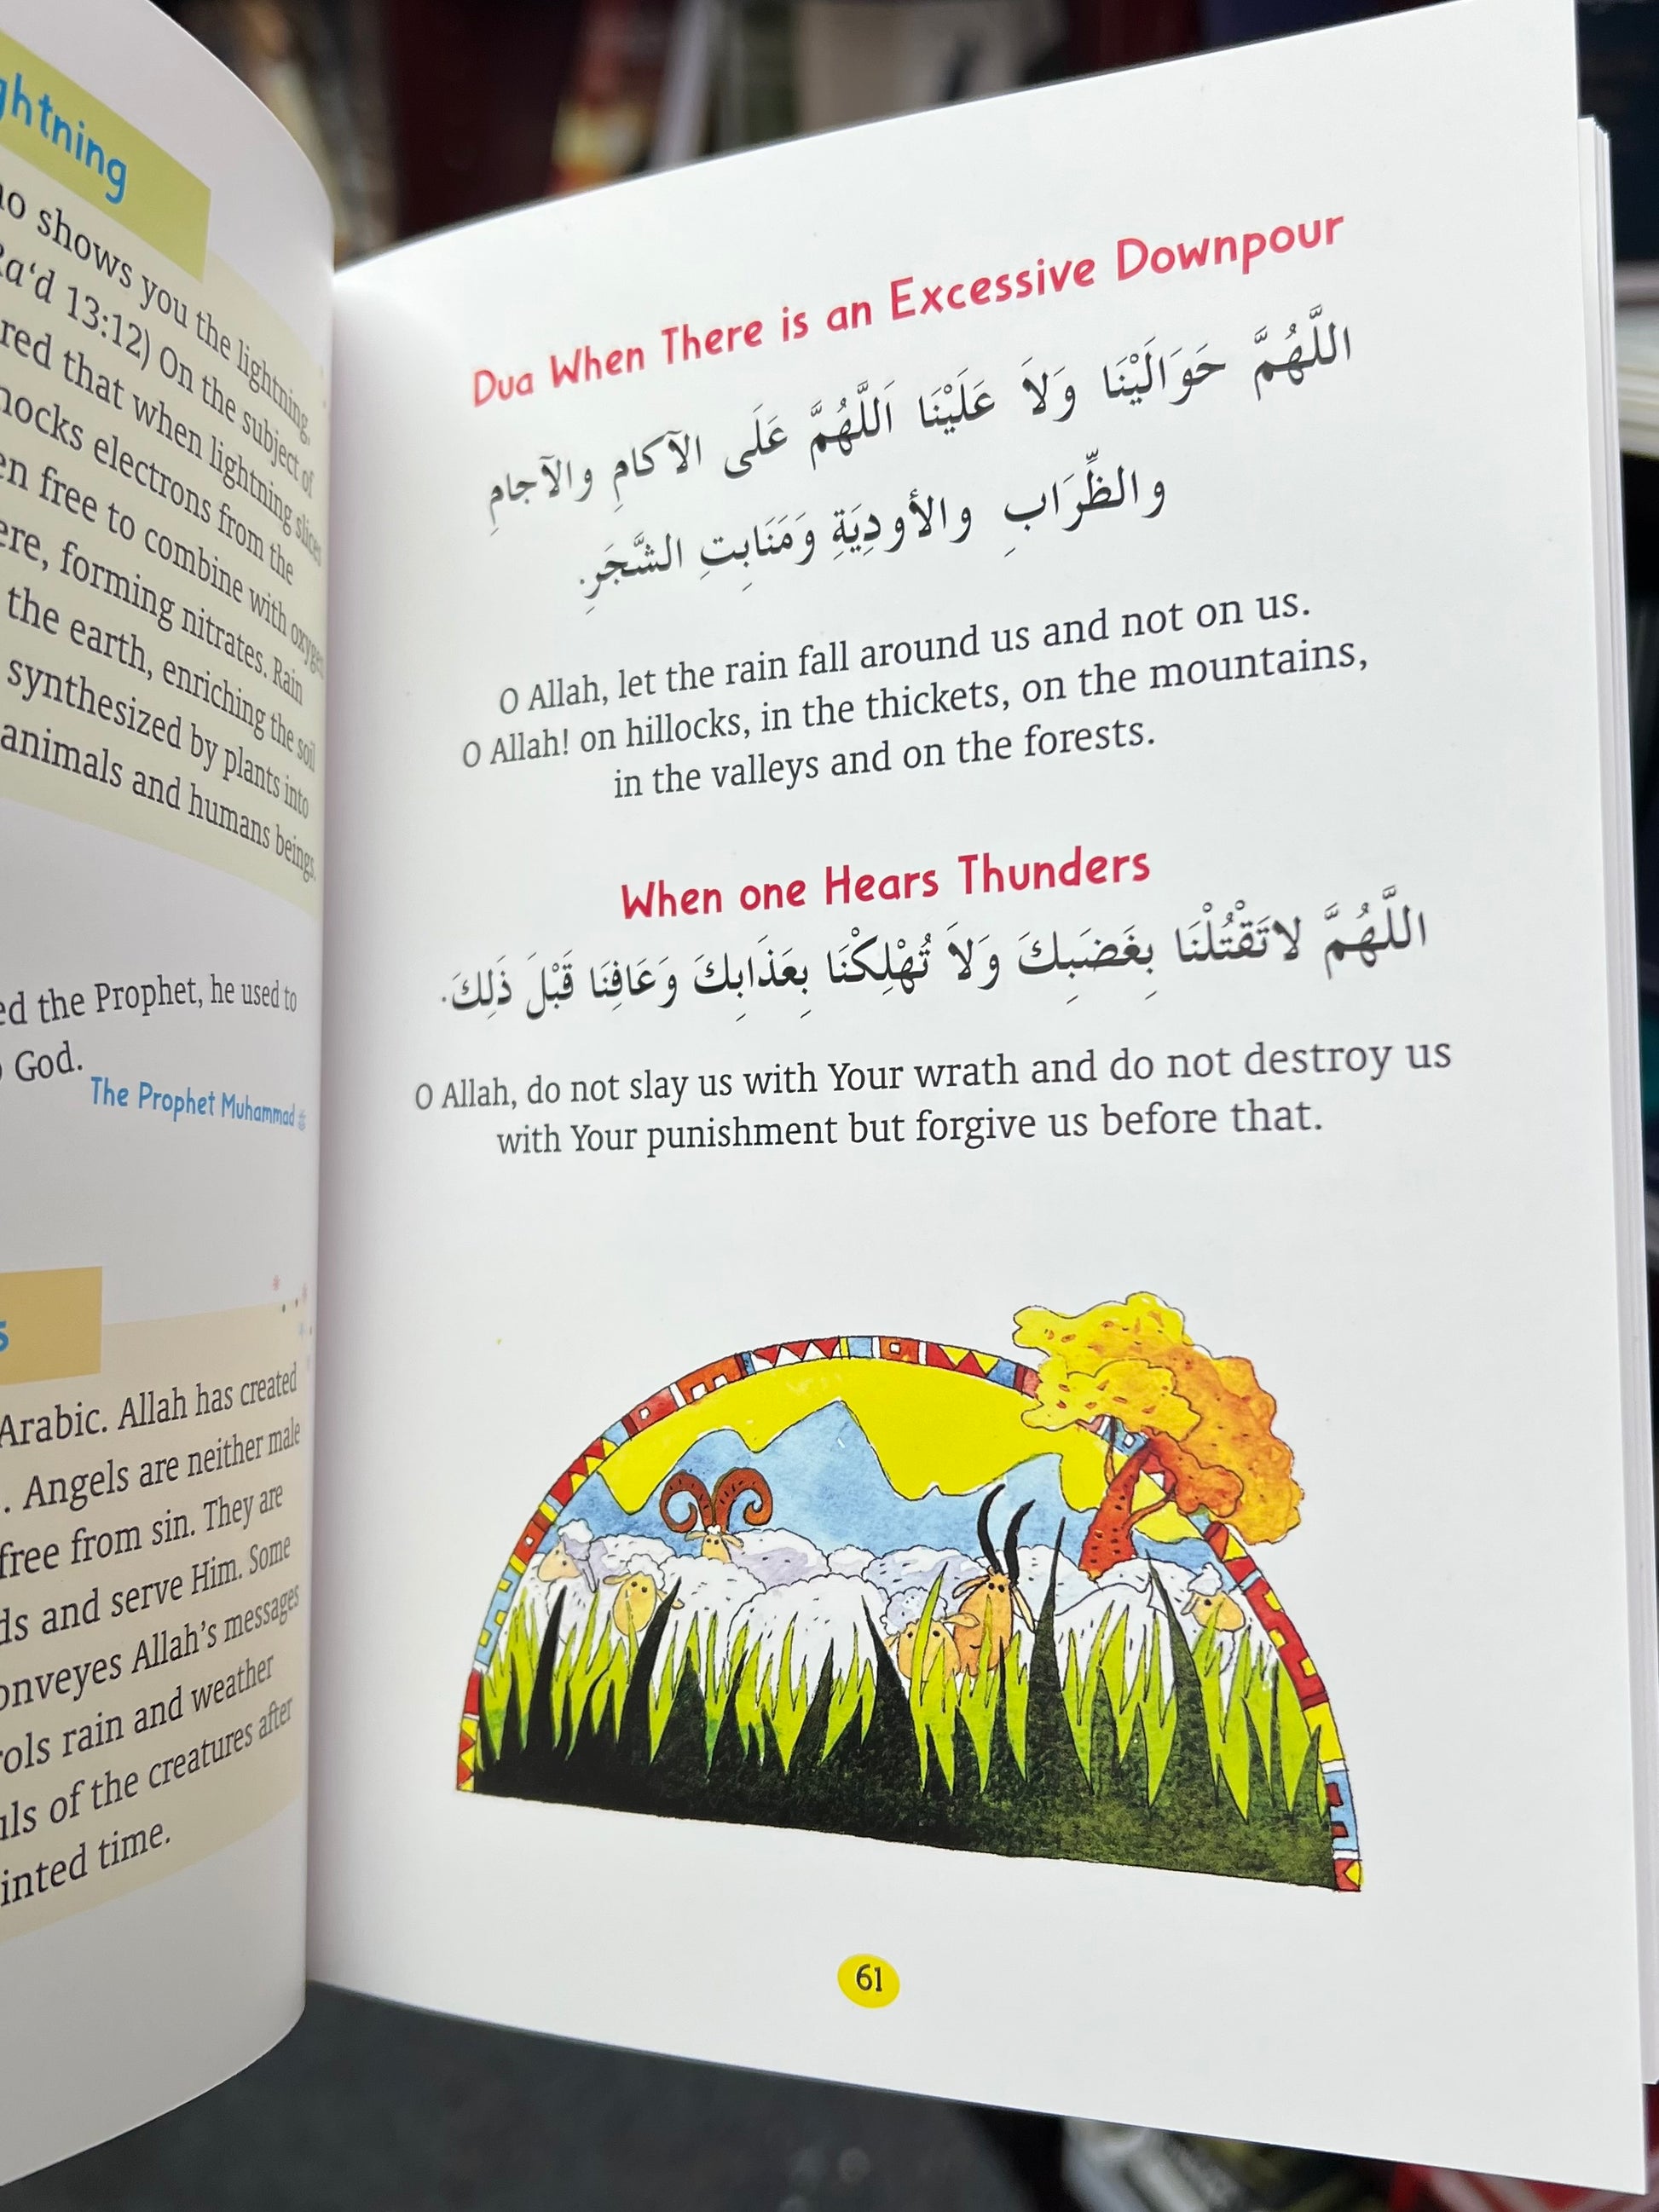 ghtning
no shows you the lightning,
Ra‘d 13:12) On the subject of
red that when lightning slices
nocks electrons from the
en free to combine with oxygen
ere, forming nitrates. Rain
the earth, enriching the soil
synthesized by plants into
animals and humans beings.
ed the Prophet, he used to
God.
The Prophet Muhammad ﷺ
s
Arabic. Allah has created
. Angels are neither male
free from sin. They are
ds and serve Him. Some
onveyes Allah’s messages
rols rain and weather
uls of the creatures after
inted time.
Dua When There is an Excessive Downpour
اللَّهُمَّ حَوَالَيْنَا وَلاَ عَلَيْنَا اَللَّهُمَّ عَلَى الآكامِ والآجامِ
والظِّرَابِ والأودِيَةِ وَمَنَابِتِ الشَّجَرِ.
O Allah, let the rain fall around us and not on us.
O Allah! on hillocks, in the thickets, on the mountains,
in the valleys and on the forests.
When one Hears Thunders
اللَّهُمَّ لاتَقْتُلْنَا بِغَضَبِكَ وَلاَ تُهْلِكْنَا بِعَذَابِكَ وَعَافِنَا قَبْلَ ذَلِكَ.
O Allah, do not slay us with Your wrath and do not destroy us
with Your punishment but forgive us before that.
61